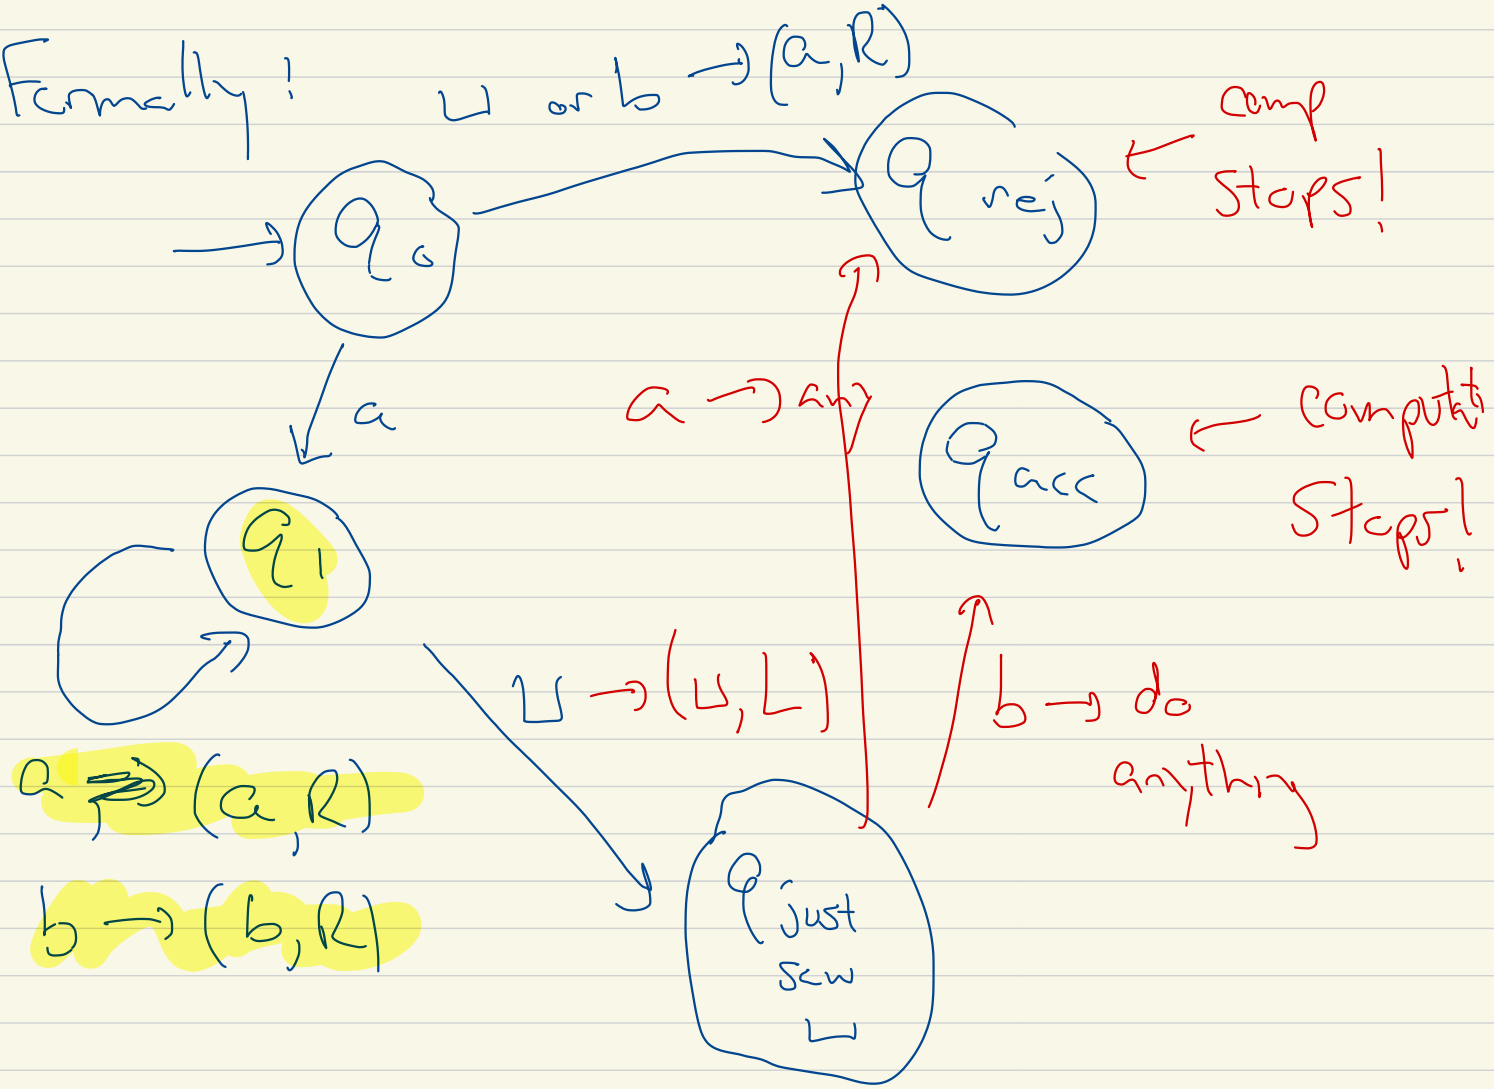 Formally!
⊔ or b → (a, R)
q0
qrej
← comp
stops!
a
a → any
qacc
← computat
stops!
q1
⊔ → (⊔, L)
b → do
anything
a → (a, R)
b → (b, R)
q just
saw
⊔